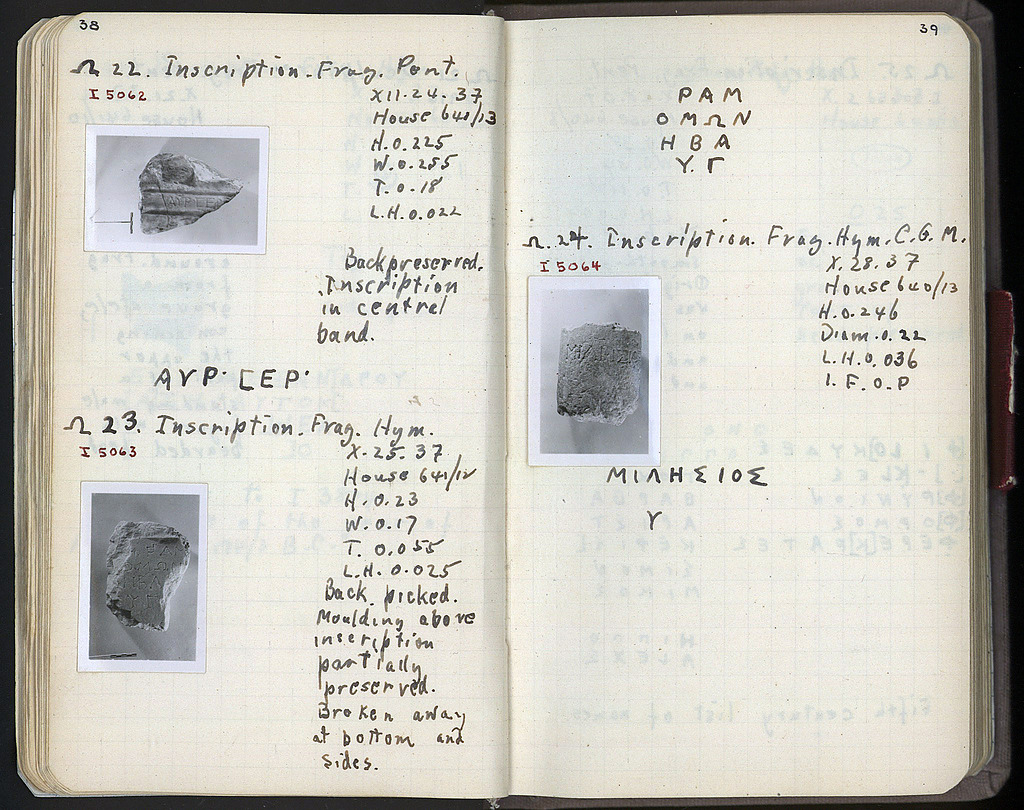 38
Ω 22. Inscription. Frag. Pent.
I 5062
XII-24-37
House 641/13
H.0.225
W.0.255
T.0.18
L.H.0.022
Back preserved.
Inscription
in central
band.
ΑΥΡ· ΣΕΡ·
Ω 23. Inscription. Frag. Hym.
I 5063
X-25-37
House 641/12
H.0.23
W.0.17
T. 0.055
L.H. 0.025
Back picked.
Moulding above
inscription
partially
preserved.
Broken away
at bottom and
sides.
39
ΡΑΜ
ΟΜΩΝ
ΗΒΑ
Υ.Γ
Ω.24. Inscription. Frag. Hym. C.G.M.
I 5064
X.28.37
House 640/13
H.0.246
Diam.0.22
L.H.0.036
ΜΙΛΗΣΙΟΣ
Υ